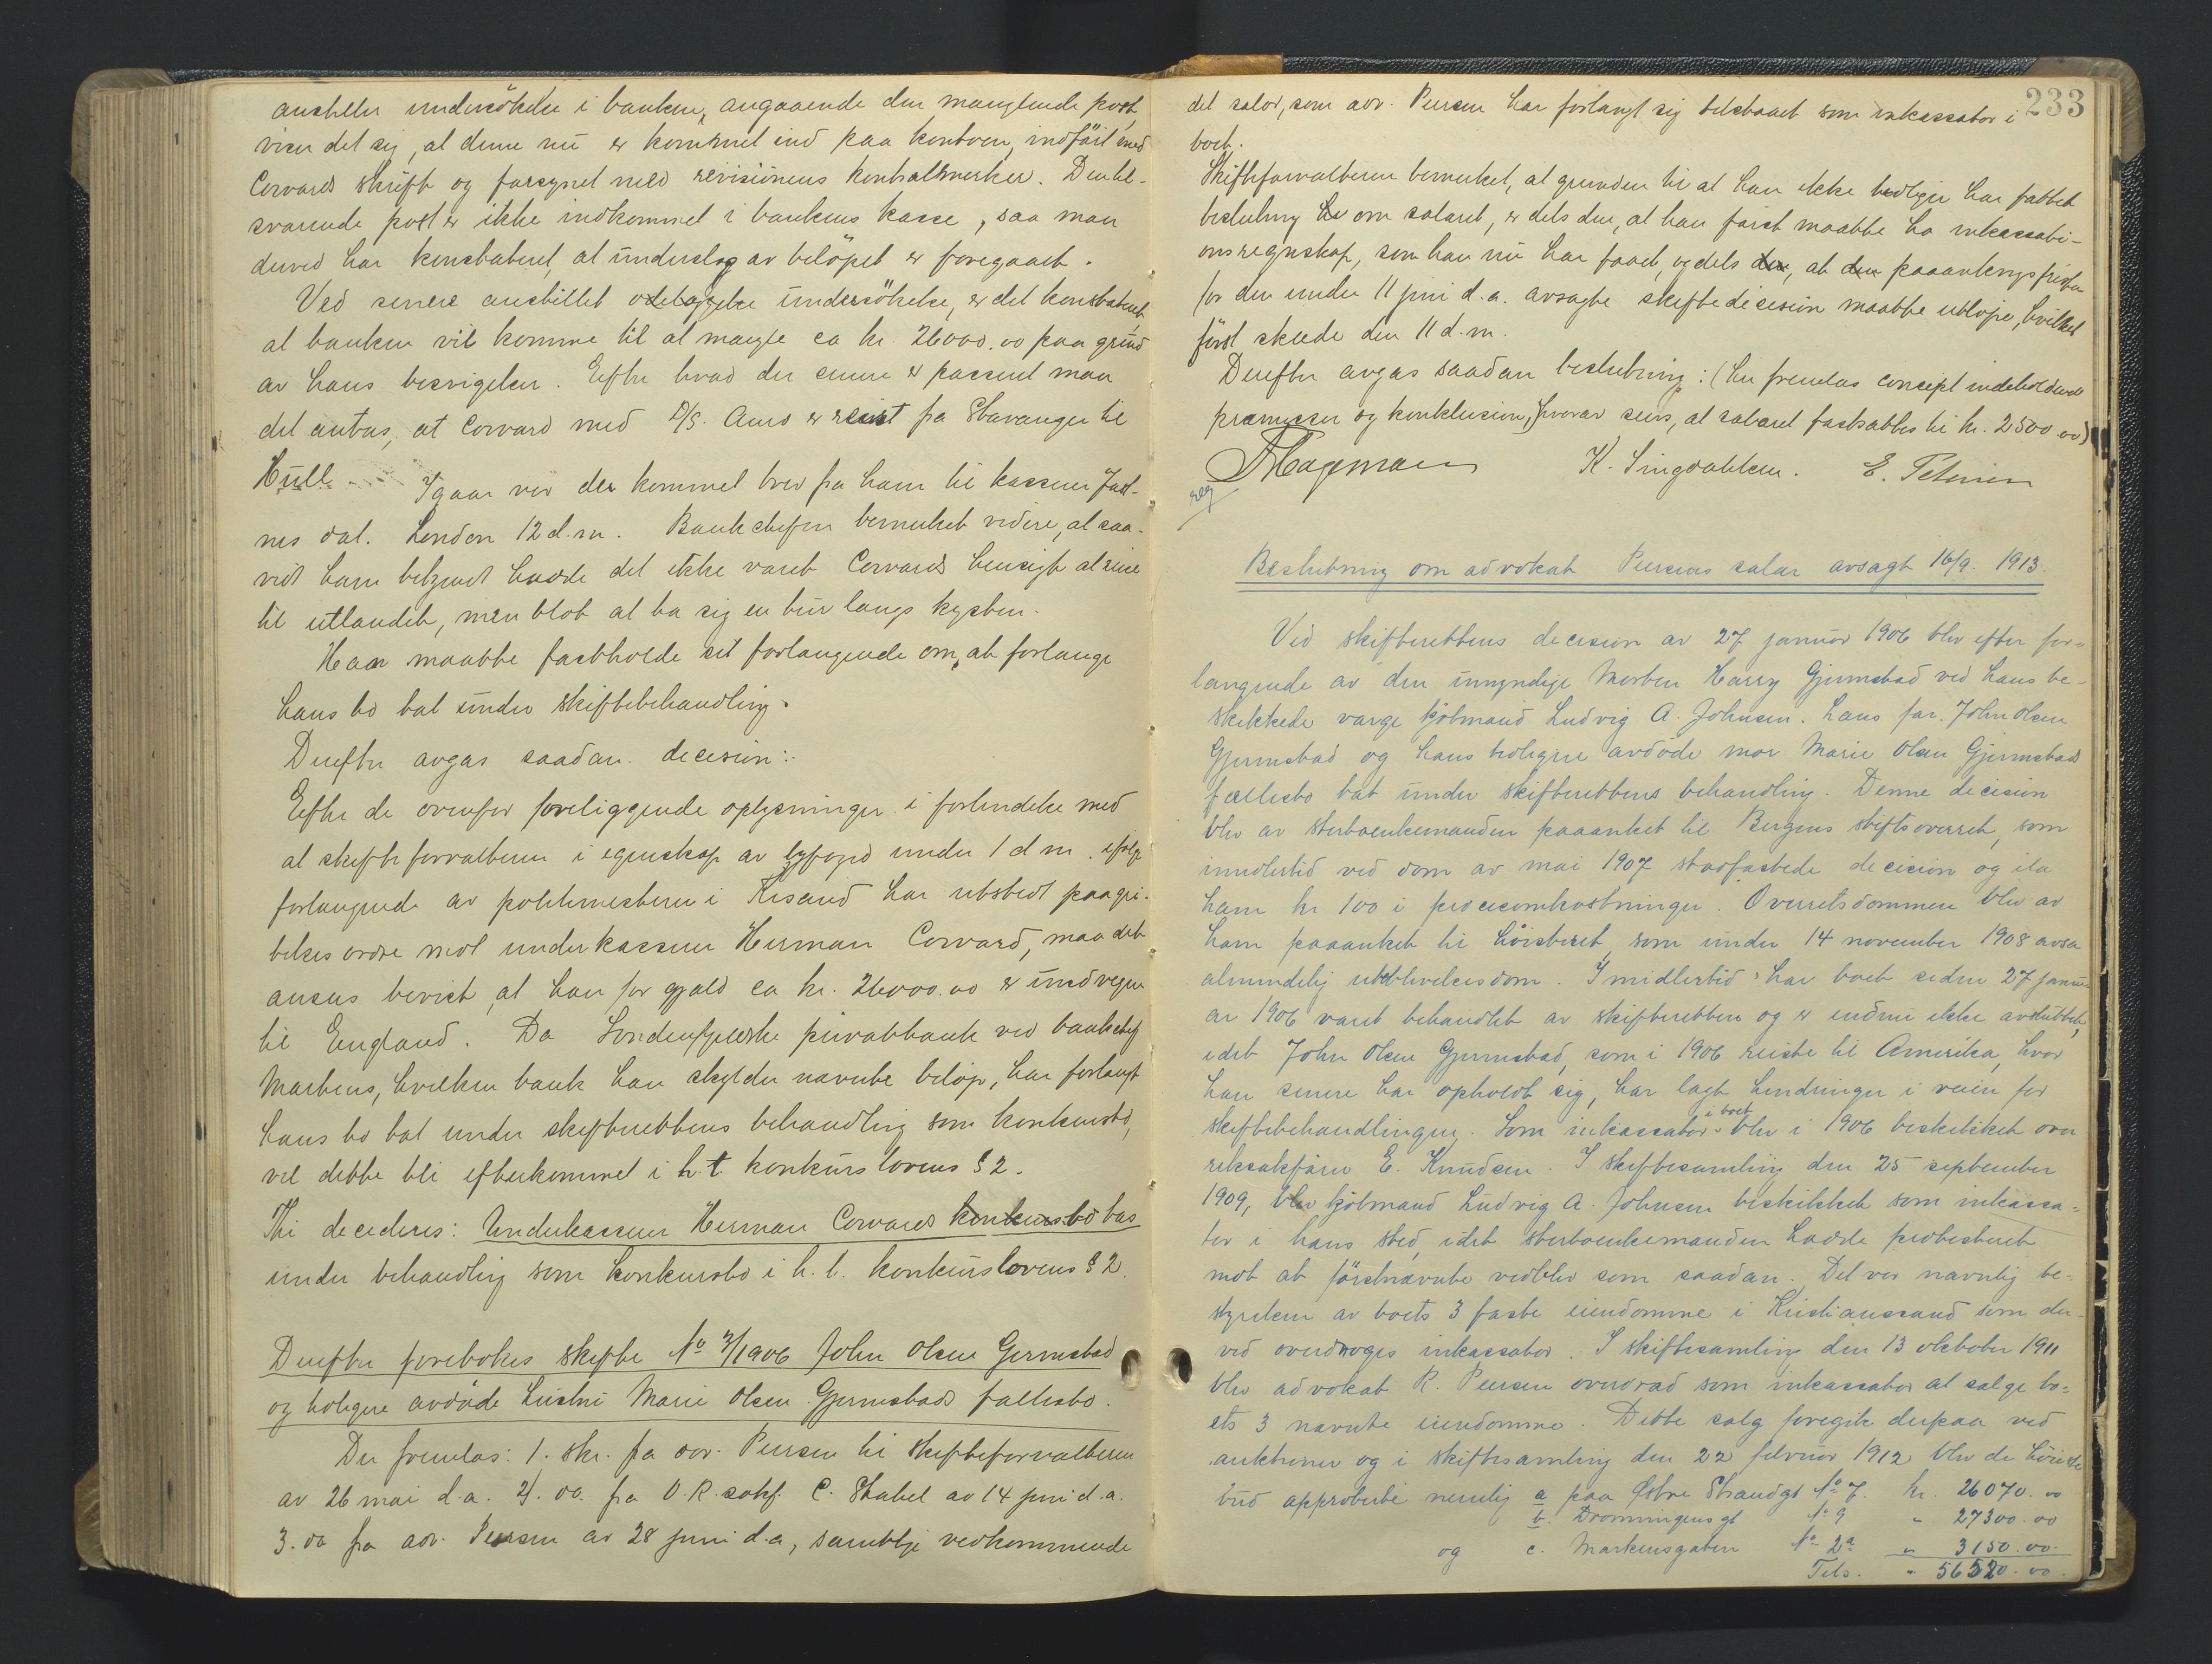 anstillet undersökelse i banken, angaaende den manglende post,
viser det sig, at denne nu er kommet ind paa kontoen, indfört med
Corvards skrift og forsynet med revisionens kontrolmerker. Den til-
svarende post er ikke indkommet i bankens kasse, saa man
derved har konstateret, at underslag av belöpet er foregaaet.
Ved senere anstillet undersökelse, er det konstateret,
at banken vil komme til at mangle ca kr. 26000.00 paa grund
av hans besvigelser. Efter hvad der senere er passeret maa
det antas, at Corvard med D/S. Auro er reist fra Stavanger til
Hull. Igaar var der kommet brev fra ham til kasserer
dat. London 12 d.m. Bankchefen bemerket videre, at saa-
vidt ham bekjendt hadde det ikke været Corvards hensigt at reise
til utlandet, men blot at ta sig en tur langs kysten.
Han maatte fastholde sit forlangende om, at forlange
hans bo tat under skiftebehandling.
Derefter avgas saadan decision:
Efter de ovenfor foreliggende oplysninger i forbindelse med
at skifteforvalteren i egenskap av byfoged under 1 d m. ifölge
forlangende av politimesteren i Krsand har utstedt paagri-
belses ordre mot underkasserer Herman Corvard, maa det
anses bevist, at han for gjæld ca kr. 26000.00 er undvegen
til England. Da Söndenfjeldske privatbank ved bankchef
Martens, hvilken bank han skylder nævnte belöp, har forlangt
hans bo tat under skifterettens behandling som konkursbo,
vil dette bli efterkommet i h.t. konkurslovens § 2.
Thi decideres: Underkasserer Herman Corvards konkursbo tas
under behandling som konkursbo i h.t. konkurslovens § 2.
Derefter foretokes skifte No 3/1906 John Olsen Gjermstad
og tidligere avdöde hustru Marie Olsen Gjermstads fællesbo.
Der fremlas: 1. skr. fra adv. Peersen til skifteforvalteren
av 26 mai d.a. 2. do. fra O.R.sakf. C. Stabel av 14 juni d.a.
3. do fra adv. Peersen av 28 juni d.a, samtlige vedkommende
233
det salær, som adv. Peersen har forlangt sig tilstaaet som inkassator i
boet.
Skifteforvalteren bemerket, at grunden til at han ikke tidligere har fattet
beslutning om salæret, er dels den, at han först maatte ha inkassati-
onsregnskap, som han nu har faaet, og dels den, at den paaankningsfristen
for den under 11 juni d.a. avsagte skiftedecision maatte utlöpe, hvilket
först skede den 11 d.m.
Derefter avgas saadan beslutning: (her fremlas concept indeholdende
præmisser og konklusion, hvorav sees, at salæret fastsættes til kr. 2500.00)
Hagemann K. Singdahlsen. E. Petersen
Beslutning om advokat Peersens salær avsagt 16/9. 1913.
Ved skifterettens decision av 27 januar 1906 blev efter for-
langende av den umyndige Morten Harry Gjermstad ved hans be-
skikkede verge kjöbmand Ludvig A. Johnsen. hans far John Olsen
Gjermstad og hans tidligere avdöde mor Marie Olsen Gjermstads
fællesbo tat under skifterettens behandling. Denne decision
blev av sterboenkemanden paaanket til Bergens stiftsoverret, som
imidlertid ved dom av mai 1907 stadfæstede decision og ila
ham kr 100 i procesomkostninger. Overretsdommen blev av
ham paaanket til höiesteret, som under 14 november 1908 avsa
almindelig utebllivelsesdom. Imidlertid har boet siden 27 janu-
ar 1906 været behandlet av skifteretten og er endnu ikke avsluttet,
idet John Olsen Gjermstad, som i 1906 reiste til Amerika, hvor
han senere har opholdt sig, har lagt hindringer i veien for
skiftebehandlingen. Som inkassator i boet blev i 1906 beskikket over
retssakförer E. Knudsen. I skiftesamling den 25 september
1909, blev kjöbmand Ludvig A. Johnsen beskikket som inkassa-
tor i hans sted, idet sterboenkemanden hadde protesteret
mot at förstnævnte vedblev som saadan. Det var navnlig be-
styrelsen av boets 3 faste eiendomme i Kristianssand som der-
ved overdroges inkassator. I skiftesamling den 13 oktober 1911
blev advokat R. Peersen overdrad som inkassator at sælge bo-
ets 3 nævnte eiendomme. Dette salg foregik derpaa ved
auktioner og i skiftesamling den 22 februar 1912 blev de höieste
bud approberte nemlig a paa Östre Strandgt No 7. kr. 26070.00
b. Dronningensgt No 9 " 27300.00
og c. Markensgaten No 2a " 3150.00
Tils. " 56520.00